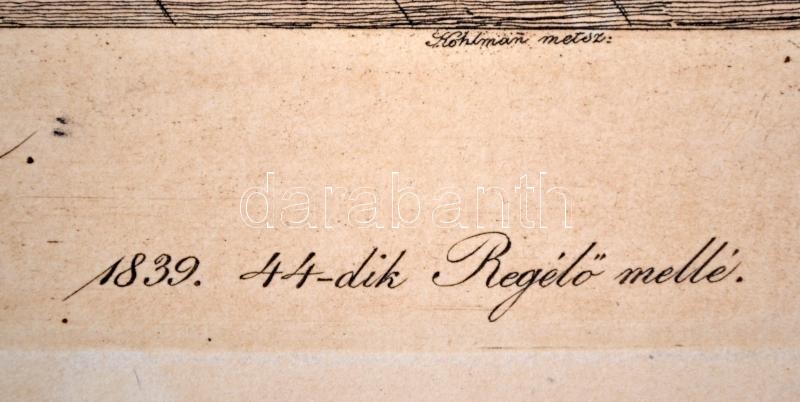 Kohlmañ metsz:
darabanth
1839. 44-dik Regélő mellé.